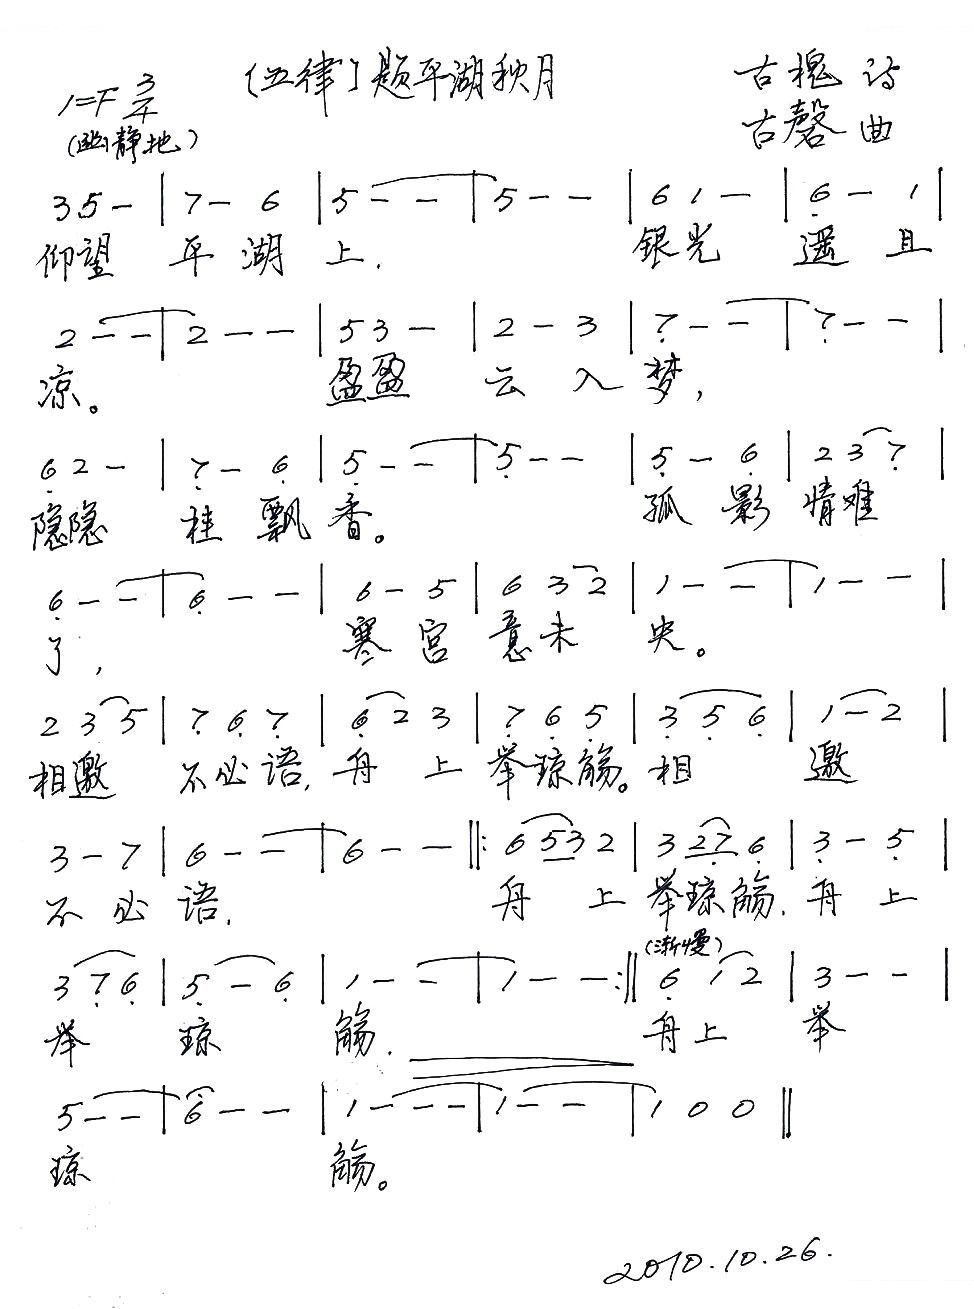 [五律]题平湖秋月
1=F 3/4
(幽静地)
古槐 诗
古磬 曲
3 5 - | 7 - 6 | 5 - - | 5 - - | 6 1 - | 6̣ - 1 |
仰望 平 湖 上, 银光 遥 且
2 - - | 2 - - | 5 3 - | 2 - 3 | 7̣ - - | 7̣ - - |
凉。 盈盈 云 入 梦,
6̣ 2 - | 7̣ - 6̣ | 5̣ - - | 5̣ - - | 5̣ - 6̣ | 2 3 7̣ |
隐隐 桂 飘 香。 孤 影 情难
6̣ - - | 6̣ - - | 6 - 5 | 6 3 2 | 1 - - | 1 - - |
了, 寒 宫 意未 央。
2 3 5 | 7̣ 6̣ 7̣ | 6̣ 2 3 | 7̣ 6̣ 5̣ | 3̣ 5̣ 6̣ | 1 - 2 |
相邀 不必语, 舟 上 举琼觞。相 邀
3 - 7 | 6 - - | 6 - - ‖: 6 5 3 2 | 3 2 7̣ 6̣ | 3̣ - 5̣ |
不 必 语, 舟 上 举琼觞, 舟 上
(渐慢)
3 7̣ 6̣ | 5̣ - 6̣ | 1 - - | 1 - - :‖ 6̣ 1 2 | 3 - - |
举 琼 觞, 舟上 举
5 - - | 6 - - | 1 - - - | 1 - - | 1 0 0 ‖
琼 觞。
2010.10.26.